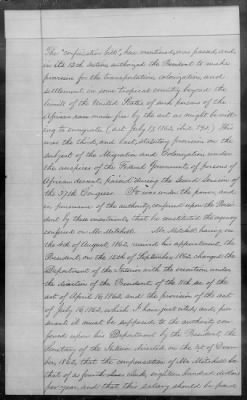 The "confiscation bill", has mentioned, was passed, and
in its 12th section authorized the President to make
provision for the transportation, colonization, and
settlement in some tropical country beyond the
limits of the United States, of such persons of the
African race made free by the act as might be will-
ing to emigrate (act July 17, 1862,
was the third, and last, statutory provision on the
subject of the Migration and Colonization, under
the auspices of the Federal Government, of persons of
African descent, passed during the Second Session of
the 37th Congress. It was under the power, and
in pursuance of the authority conferred upon the Presi-
dent by these enactments, that he constituted the agency
conferred on Mr. Mitchell. Mr. Mitchell having on
the 4th of August, 1862, received his appointment, the
President, on the 15th of September 1862 charged the
Department of the Interior with the execution under
the direction of the President, of the 11th sec. of the
act of April 16, 1862 and the provision of the act
of July 16, 1862, which I have just cited, and pur-
suant it must be supposed to the authority con-
ferred upon his Department by the President, the
Secretary of the Interior directed on the 1st of Decem-
ber 1862, that the compensation of Mr. Mitchell be
that of a fourth class clerk, eighteen hundred dollars
per year, and that this salary should be paid